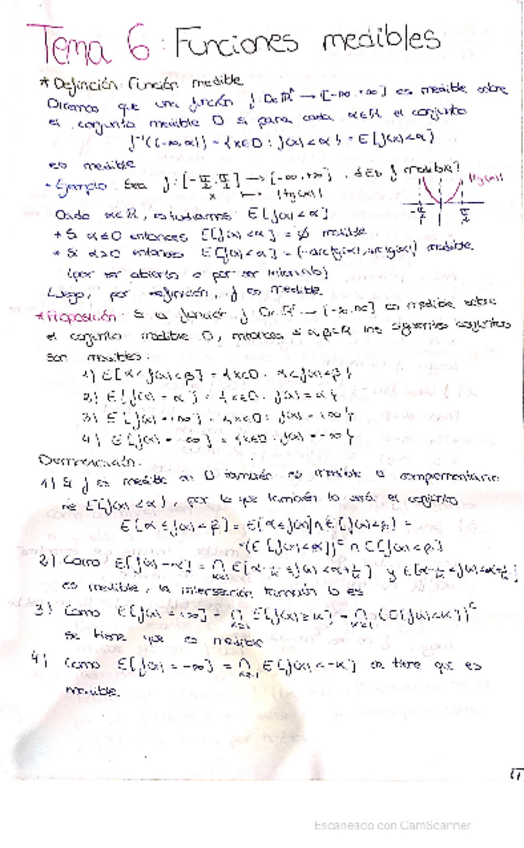 Tema 6: Funciones medibles
* Definición: Función medible
Diremos que una función f: D⊂ℝⁿ → [-∞,+∞] es medible sobre
el conjunto medible D si para cada α∈ℝ el conjunto
f⁻¹((-∞,α)) = {x∈D: f(x)<α} = E[f(x)<α]
es medible
- Ejemplo: Sea f: [-π/2, π/2] → [-∞,+∞]. ¿Es f medible?
x ↦ |tg(x)|
|tg(x)|
-π/2 π/2
Dado α∈ℝ, estudiamos E[f(x)<α]
+ Si α≤0 entonces E[f(x)<α] = ∅ medible
+ Si α>0 entonces E[f(x)<α] = (-arctg(α), arctg(α)) medible
(por ser abierto o por ser intervalo)
Luego, por definición, f es medible
* Proposición: Si la función f: D⊂ℝⁿ → [-∞,∞] es medible sobre
el conjunto medible D, entonces si α,β∈ℝ los siguientes conjuntos
son medibles:
1) E[α≤f(x)<β] = {x∈D: α≤f(x)<β}
2) E[f(x)=α] = {x∈D: f(x)=α}
3) E[f(x)=+∞] = {x∈D: f(x)=+∞}
4) E[f(x)=-∞] = {x∈D: f(x)=-∞}
Demostración:
1) Si f es medible en D también es medible el complementario
de E[f(x)<α], por lo que también lo será el conjunto
E[α≤f(x)<β] = E[α≤f(x)]∩E[f(x)<β] =
=(E[f(x)<α])ᶜ ∩ E[f(x)<β]
2) Como E[f(x)=α] = ⋂ E[α-1/k≤f(x)<α+1/k] y E[α-1/k≤f(x)<α+1/k]
k≥1
es medible, la intersección también lo es
3) Como E[f(x)=+∞] = ⋂ E[f(x)≥k] = ⋂ (E[f(x)<k])ᶜ
k≥1 k≥1
se tiene que es medible
4) Como E[f(x)=-∞] = ⋂ E[f(x)<-k] se tiene que es
k≥1
medible.
Escaneado con CamScanner